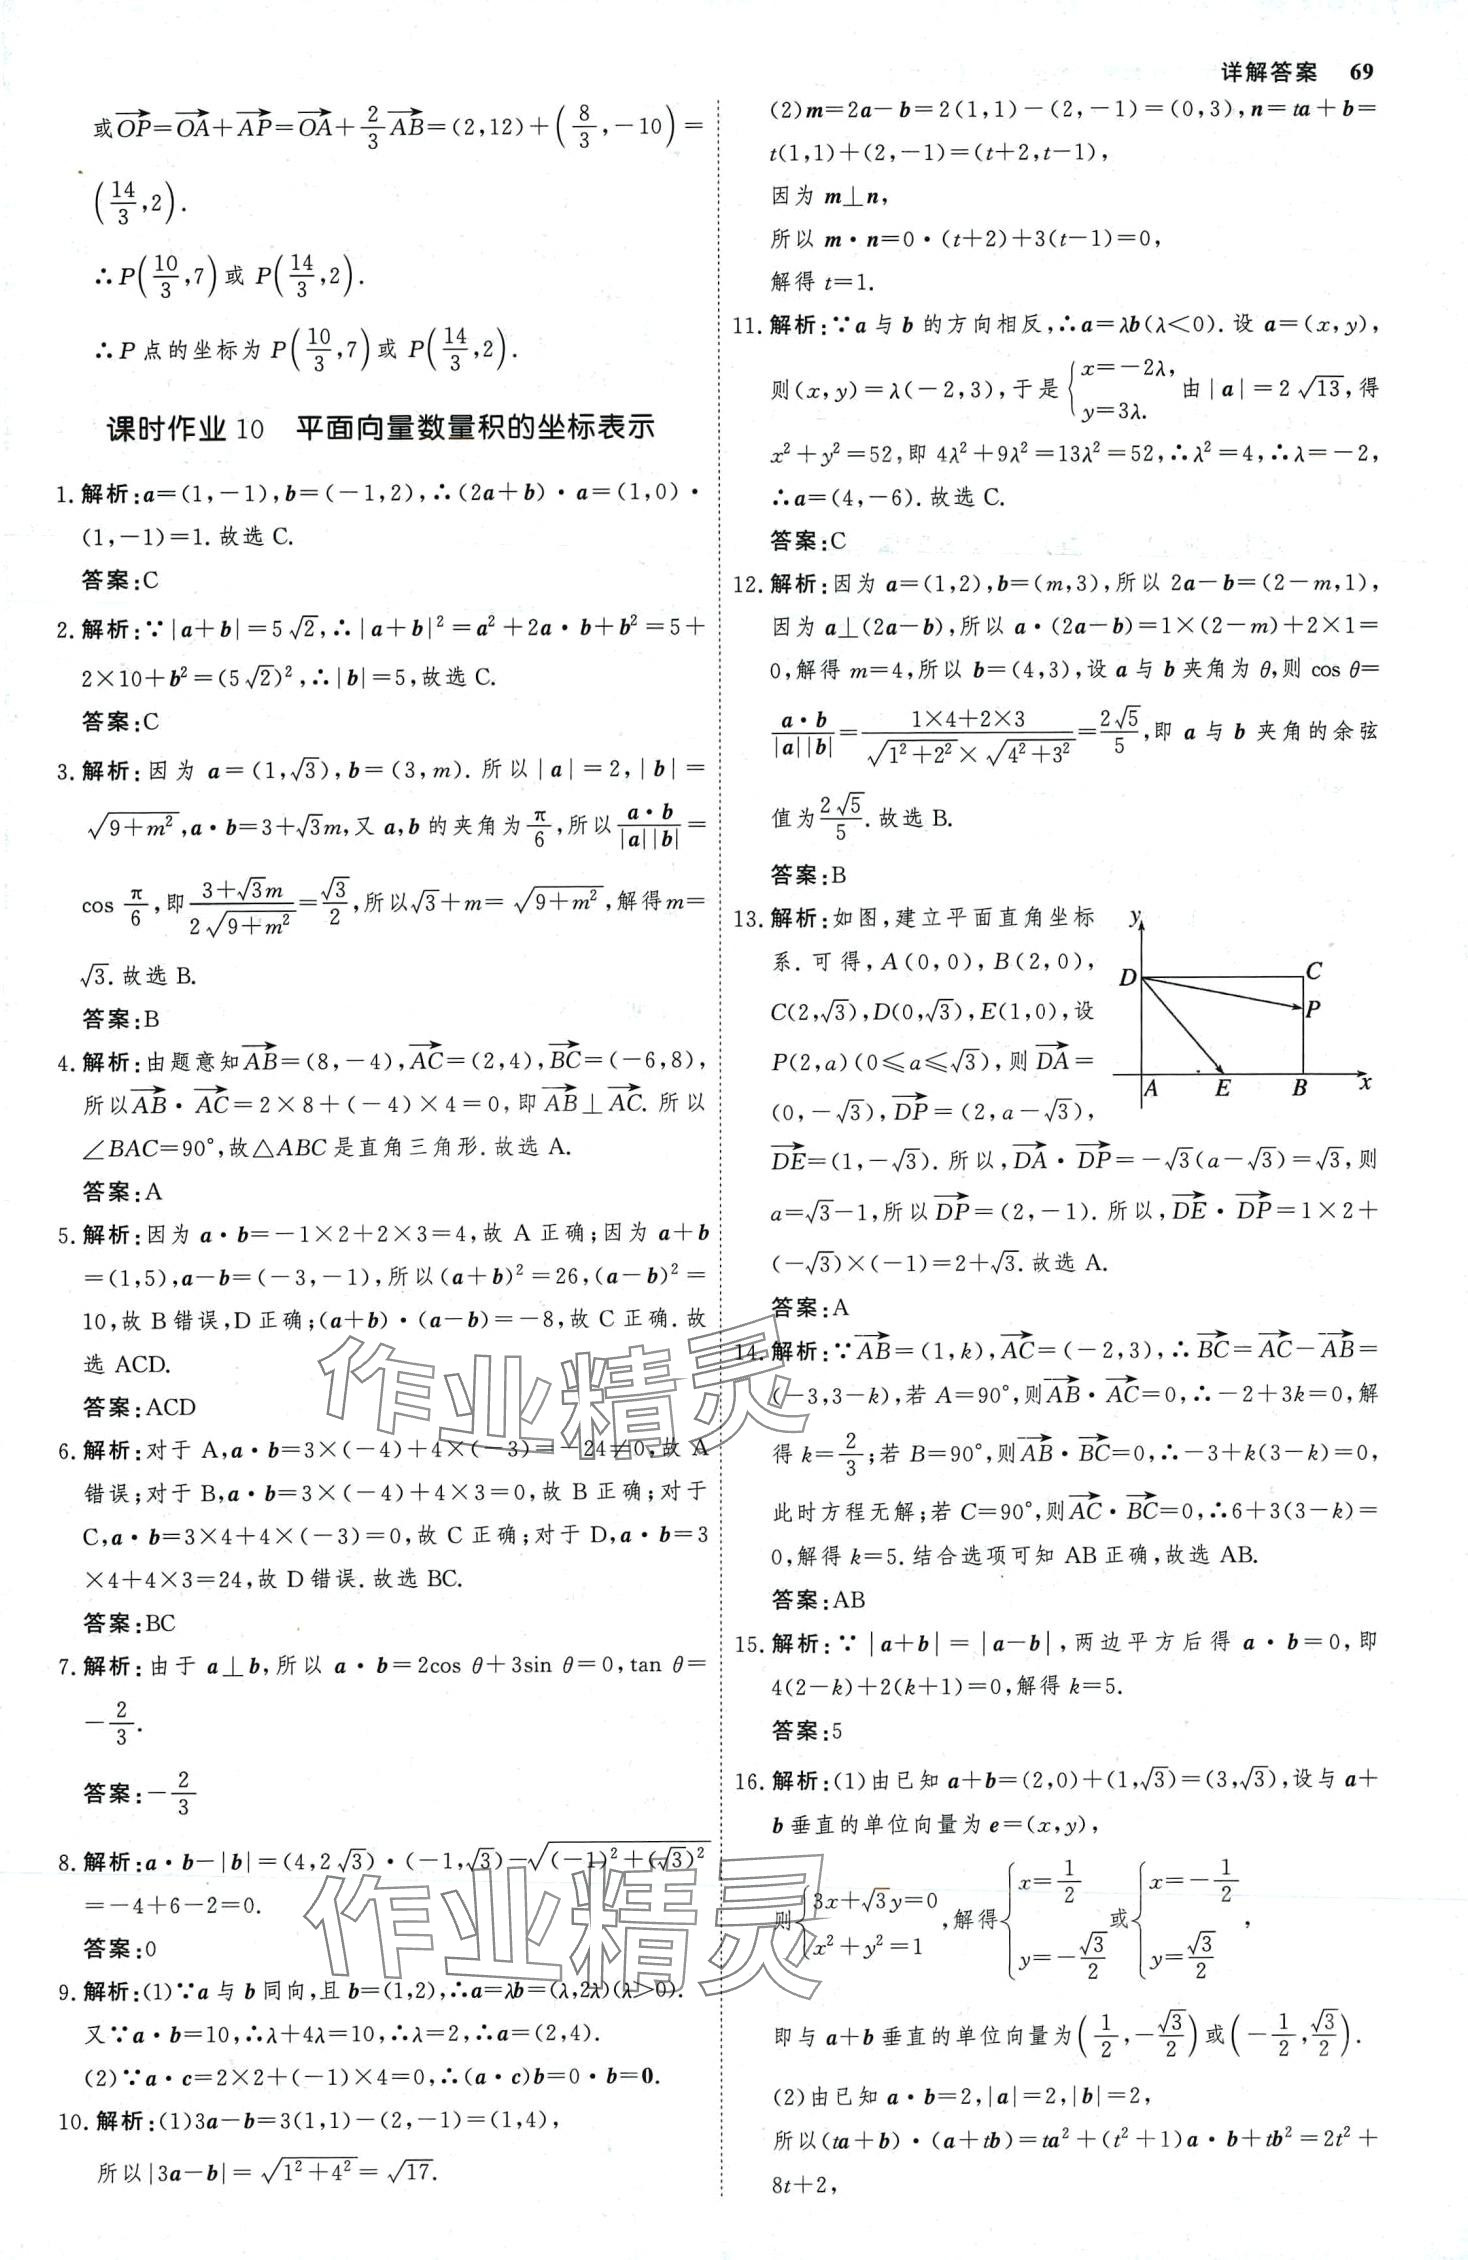 详解答案 69
或OP=OA+AP=OA+2/3 AB=(2,12)+(8/3,-10)=
(14/3,2).
∴P(10/3,7)或 P(14/3,2).
∴P点的坐标为 P(10/3,7)或 P(14/3,2).
课时作业10 平面向量数量积的坐标表示
1. 解析:a=(1,-1),b=(-1,2),∴(2a+b)·a=(1,0)·
(1,-1)=1.故选 C.
答案:C
2. 解析:∵|a+b|=5√2,∴|a+b|²=a²+2a·b+b²=5+
2×10+b²=(5√2)²,∴|b|=5,故选 C.
答案:C
3. 解析:因为 a=(1,√3),b=(3,m).所以|a|=2,|b|=
√(9+m²),a·b=3+√3m,又 a,b 的夹角为π/6,所以 a·b/(|a||b|)=
cos π/6,即(3+√3m)/(2√(9+m²))=√3/2,所以√3+m=√(9+m²),解得 m=
√3.故选 B.
答案:B
4. 解析:由题意知AB=(8,-4),AC=(2,4),BC=(-6,8),
所以AB·AC=2×8+(-4)×4=0,即AB⊥AC.所以
∠BAC=90°,故△ABC是直角三角形.故选 A.
答案:A
5. 解析:因为 a·b=-1×2+2×3=4,故 A 正确;因为 a+b
=(1,5),a-b=(-3,-1),所以(a+b)²=26,(a-b)²=
10,故 B 错误,D 正确;(a+b)·(a-b)=-8,故 C 正确.故
选 ACD.
答案:ACD
6. 解析:对于 A,a·b=3×(-4)+4×(-3)=-24≠0,故 A
错误;对于 B,a·b=3×(-4)+4×3=0,故 B 正确;对于
C,a·b=3×4+4×(-3)=0,故 C 正确;对于 D,a·b=3
×4+4×3=24,故 D 错误.故选 BC.
答案:BC
7. 解析:由于 a⊥b,所以 a·b=2cos θ+3sin θ=0,tan θ=
-2/3.
答案:-2/3
8. 解析:a·b-|b|=(4,2√3)·(-1,√3)-√((-1)²+(√3)²)
=-4+6-2=0.
答案:0
9. 解析:(1)∵a与b同向,且b=(1,2),∴a=λb=(λ,2λ)(λ>0).
又∵a·b=10,∴λ+4λ=10,∴λ=2,∴a=(2,4).
(2)∵a·c=2×2+(-1)×4=0,∴(a·c)b=0·b=0.
10. 解析:(1)3a-b=3(1,1)-(2,-1)=(1,4),
所以|3a-b|=√(1²+4²)=√17.
(2)m=2a-b=2(1,1)-(2,-1)=(0,3),n=ta+b=
t(1,1)+(2,-1)=(t+2,t-1),
因为 m⊥n,
所以 m·n=0·(t+2)+3(t-1)=0,
解得 t=1.
11. 解析:∵a 与 b 的方向相反,∴a=λb(λ<0).设 a=(x,y),
则(x,y)=λ(-2,3),于是{x=-2λ, y=3λ. 由|a|=2√13,得
x²+y²=52,即 4λ²+9λ²=13λ²=52,∴λ²=4,∴λ=-2,
∴a=(4,-6).故选 C.
答案:C
12. 解析:因为 a=(1,2),b=(m,3),所以 2a-b=(2-m,1),
因为 a⊥(2a-b),所以 a·(2a-b)=1×(2-m)+2×1=
0,解得 m=4,所以 b=(4,3),设 a 与 b 夹角为 θ,则 cos θ=
a·b/(|a||b|)=(1×4+2×3)/(√(1²+2²)×√(4²+3²))=2√5/5,即 a 与 b 夹角的余弦
值为2√5/5.故选 B.
答案:B
13. 解析:如图,建立平面直角坐标
系.可得,A(0,0),B(2,0),
C(2,√3),D(0,√3),E(1,0),设
P(2,a)(0≤a≤√3),则DA=
(0,-√3),DP=(2,a-√3),
y
D
C
P
A
E
B
x
DE=(1,-√3).所以,DA·DP=-√3(a-√3)=√3,则
a=√3-1,所以DP=(2,-1).所以,DE·DP=1×2+
(-√3)×(-1)=2+√3.故选 A.
答案:A
14. 解析:∵AB=(1,k),AC=(-2,3),∴BC=AC-AB=
(-3,3-k),若 A=90°,则AB·AC=0,∴-2+3k=0,解
得 k=2/3;若 B=90°,则AB·BC=0,∴-3+k(3-k)=0,
此时方程无解;若 C=90°,则AC·BC=0,∴6+3(3-k)=
0,解得 k=5.结合选项可知 AB 正确,故选 AB.
答案:AB
15. 解析:∵|a+b|=|a-b|,两边平方后得 a·b=0,即
4(2-k)+2(k+1)=0,解得 k=5.
答案:5
16. 解析:(1)由已知 a+b=(2,0)+(1,√3)=(3,√3),设与 a+
b 垂直的单位向量为 e=(x,y),
则{3x+√3y=0 x²+y²=1,解得{x=1/2 y=-√3/2 或{x=-1/2 y=√3/2,
即与 a+b 垂直的单位向量为(1/2,-√3/2)或(-1/2,√3/2).
(2)由已知 a·b=2,|a|=2,|b|=2,
所以(ta+b)·(a+tb)=ta²+(t²+1)a·b+tb²=2t²+
8t+2,
作业精灵
作业精灵